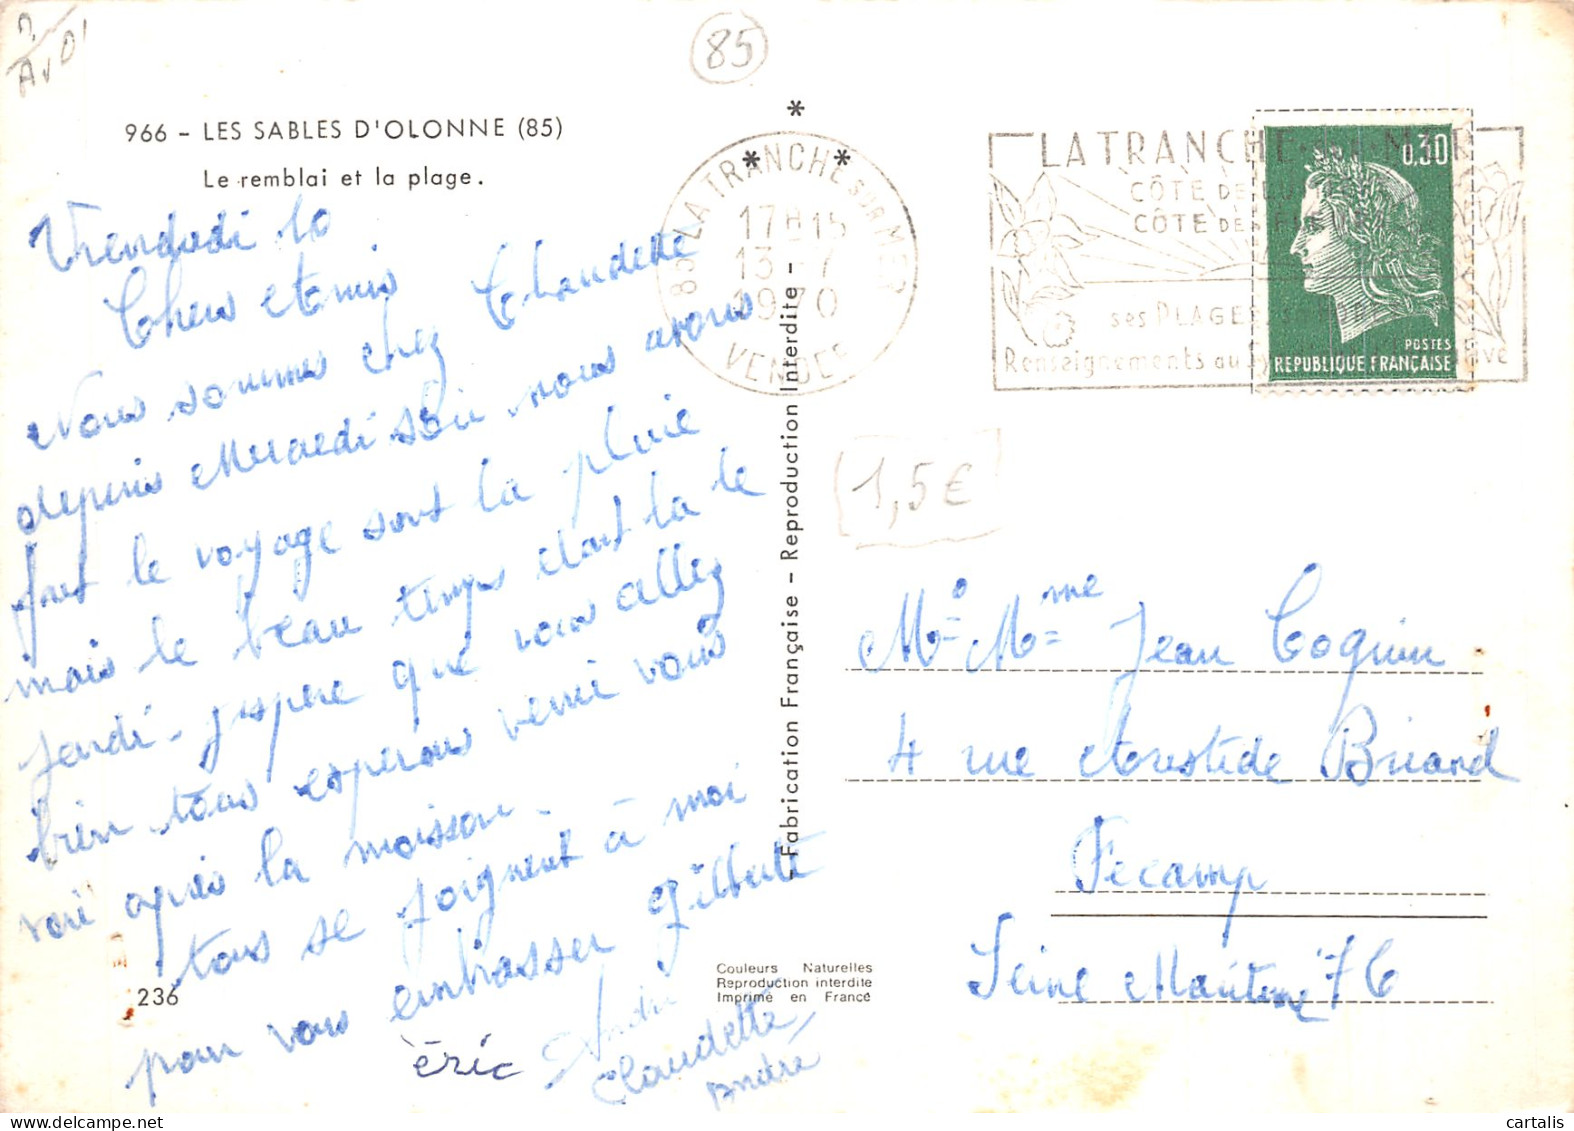 D.
AvD'
85
966 - LES SABLES D'OLONNE (85)
Le remblai et la plage.
Vendredi 10
Chers Amis
Nous sommes chez Claudette
depuis Mercredi soir nous avons
fait le voyage sout la pluie
mais le beau temps dort la le
Jeudi - j'espere que vous allez
bien tous esperons venir vous
voir après la moisson -
tous se joignent à moi
pour vous embrasser Gilberte
èric André
Claudette
André
236
*
* *
85 LA TRANCHE SUR MER
17H15
13-7
1970
VENDEE
LA TRANCHE MER
CÔTE DE LU
CÔTE DES
ses PLAGES
Renseignements au
0,30
POSTES
REPUBLIQUE FRANÇAISE
1,5€
Fabrication Française - Reproduction Interdite -
Mr Mme Jean Coquin
4 rue Aristide Briand
Fécamp
Seine Maritime 76
Couleurs Naturelles
Reproduction interdite
Imprimé en France
cartalis
www.delcampe.net